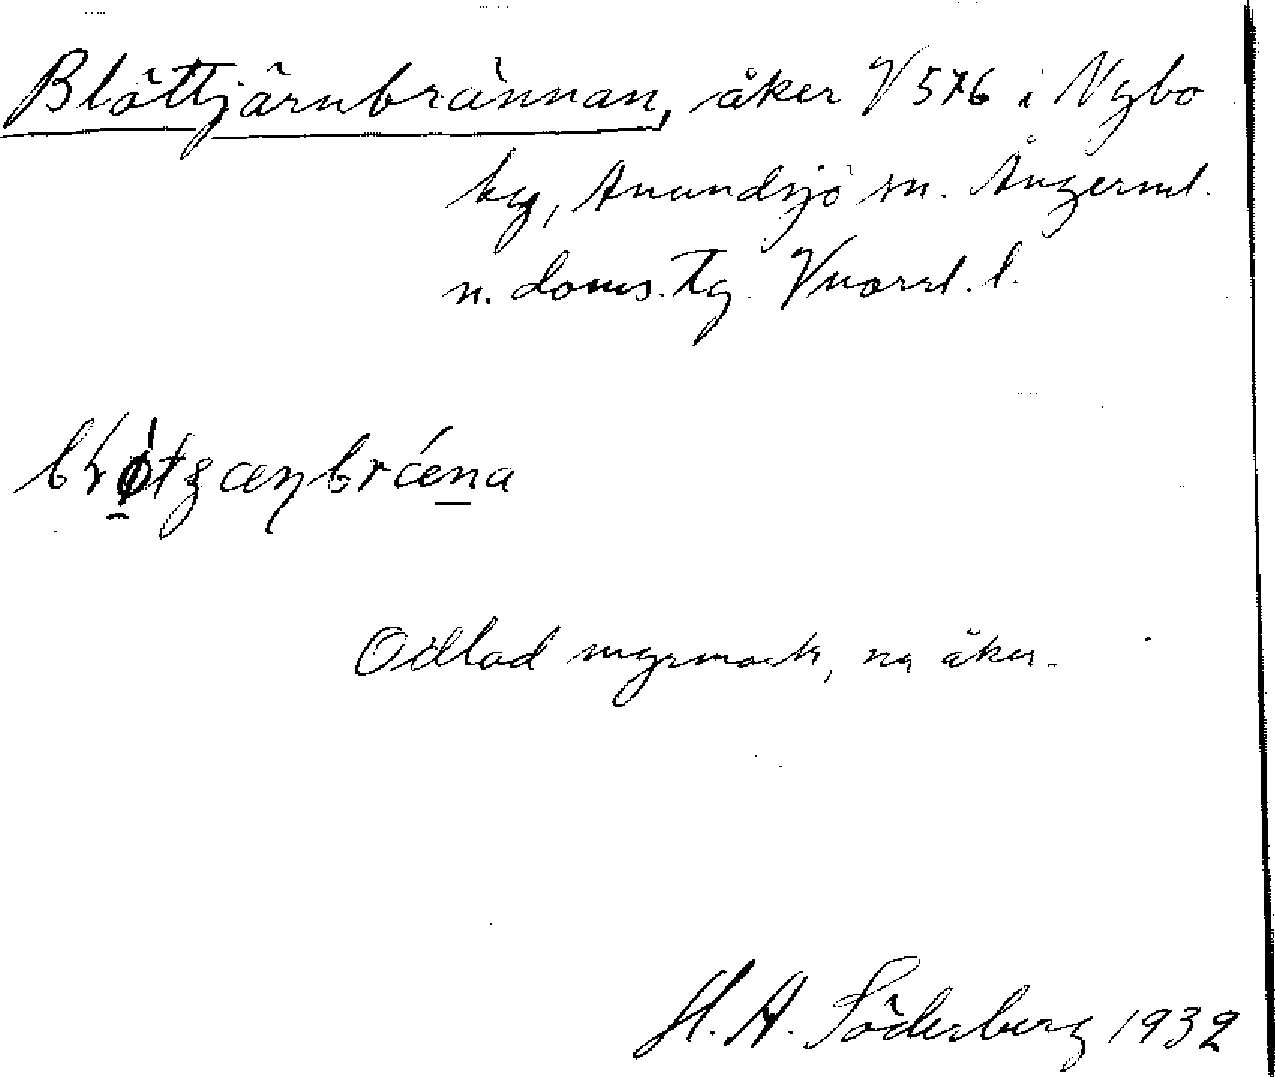 Blöttjärnbrännan, åker V 576 i Nybo
by, Anundsjö sn. Ångerml.
n. doms. Tg. Vnorrl. l.
Odlad myrmark, nu åker.
H. A. Söderberg 1932